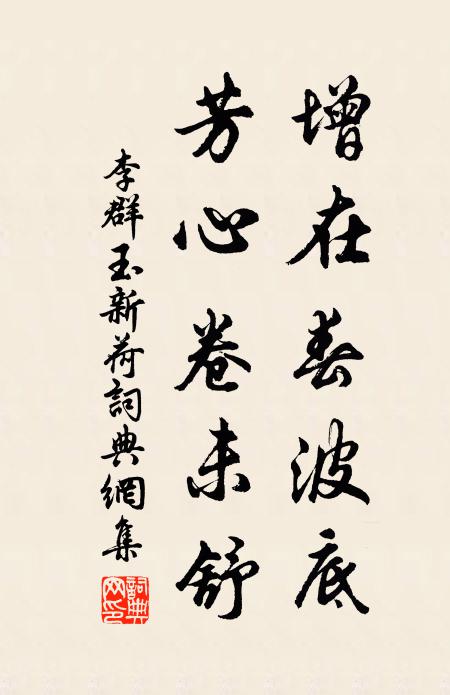 增在春波底
芳心卷未舒
李群玉新荷詞典網集
詞典網印